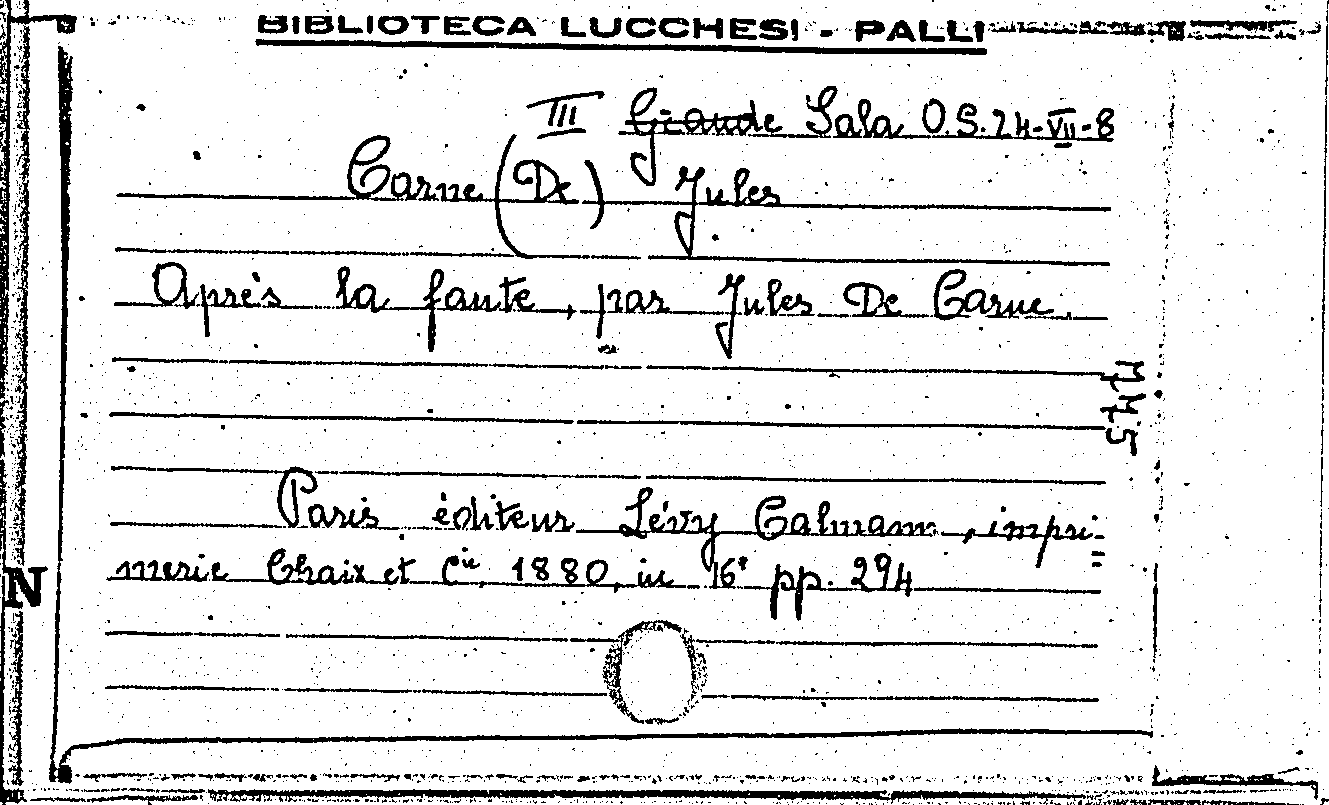 BIBLIOTECA LUCCHESI - PALLI
III Grande Sala O.S. 24-VII-8
Carne (De) Jules
Après la faute, par Jules De Carne.
Paris éditeur Lévy Calmann, impri=
merie Chaix et Cie. 1880, in 16° pp. 294
N